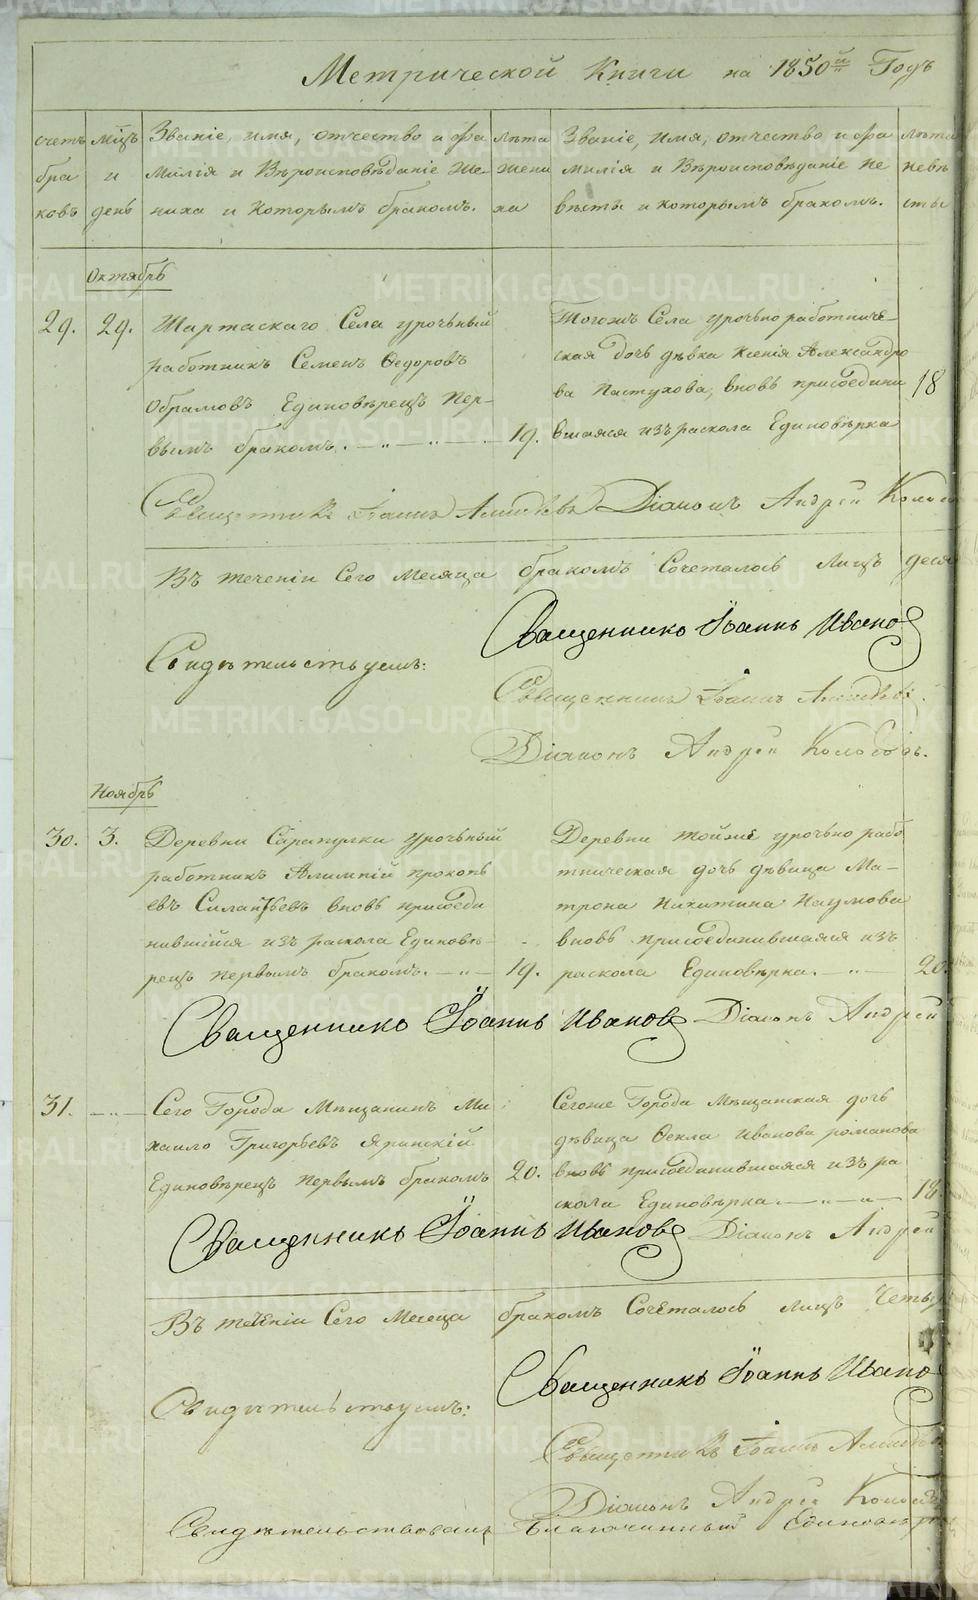 Метрической Книги на 1850й Годъ
счетъ бра ковъ
мцъ и день
Званіе, имя, отчество и фа
милія и Вѣроисповѣданіе Же-
ниха и Которымъ бракомъ.
лѣта жени ха
Званіе, имя, отчество и фа
милія и Вѣроисповѣданіе не
вѣсты и которымъ бракомъ.
лѣта невѣ сты
Октябрь
29. 29. Шарташскаго Села урочьный
работникъ Семенъ Ѳедоровъ
Обрамовъ Единовѣрецъ Пер-
вымъ бракомъ. 19.
Тогожъ Села урочьно работниче-
ская дочь дѣвка Ксенія Александро
ва Пастухова, вновь присоедини 18
вшаяся изъ раскола Единовѣрка
Священникъ Іоаннъ Діаконъ Андрей
Въ теченіи Сего Месяца бракомъ Сочеталось лицъ деся
Священникъ Іоаннъ Ивано
Свидѣтельствуемъ:
Священникъ Іоаннъ
Діаконъ Андрей
Ноябрь
30. 3. Деревни Сарапулки урочьный
работникъ Алимпій прокопь
евъ Силантьевъ вновь присоеди
нившійся изъ раскола Единовѣ-
рецъ первымъ бракомъ. 19.
Деревни тойже урочьно рабо
тническая дочь дѣвица Ма-
трона Никитина Наумова
вновь присоединившаяся изъ
раскола Единовѣрка. 20.
Священникъ Іоаннъ Ивановъ Діаконъ Андрей
31. Сего Города Мѣщанинъ Ми
хаило Григорьевъ Яринскій
Единовѣрецъ первымъ бракомъ 20.
Сегоже Города Мѣщанская дочь
дѣвица Ѳекла Иванова романова
вновь присоединившаяся изъ ра
скола Единовѣрка. 18.
Священникъ Іоаннъ Ивановъ Діаконъ Андрей
Въ течЕніи Сего Месеца бракомъ Сочеталось лицъ Четы
Священникъ Іоаннъ Ивано
Свидѣтельствуемъ:
Священникъ Іоаннъ
Діаконъ Андрей
Свидѣтельствовалъ Благочинный Единовѣр
METRIKI.GASO-URAL.RU